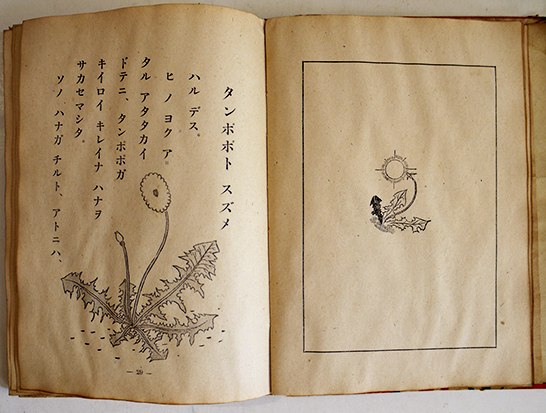 タンポポト スズメ
ハル デス。
ヒ ノ ヨク ア
タル アタタカイ
ドテニ、タンポポガ
キイロイ キレイナ ハナヲ
サカセマシタ。
ソノ ハナガ チルト、アトニハ、
— 29 —